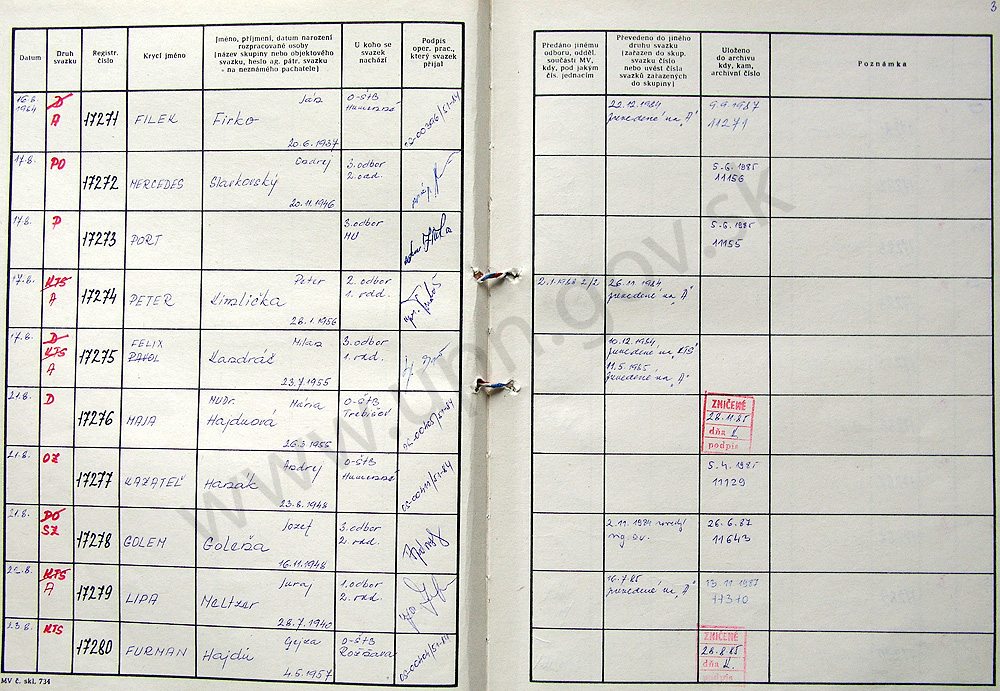 3
Datum
Druh svazku
Registr. číslo
Krycí jméno
Jméno, příjmení, datum narození rozpracované osoby (název skupiny nebo objektového svazku, heslo ag. pátr. svazku - na neznámého pachatele)
U koho se svazek nachází
Podpis oper. prac., který svazek přijal
Předáno jinému odboru, odděl. součásti MV, kdy, pod jakým čís. jednacím
Převedeno do jiného druhu svazku (zařazen do skup. svazku číslo nebo uvést čísla svazků zařazených do skupiny)
Uloženo do archivu kdy, kam, archivní číslo
Poznámka
16.8. 1984 D A 17271 FILEK Ján Firko 20.6.1937 O-ŠtB Humenné
22.12.1984 prevedené na "A" 9.9.1987 11271
17.8. PO 17272 MERCEDES Ondrej Slavkovský 20.11.1946 3.odbor 2.odd.
5.6.1985 11156
17.8. P 17273 PORT 3.odbor
5.6.1985 11155
17.8. KTS A 17274 PETER Peter Kimlička 28.1.1956 2.odbor 1.odd.
26.11.1984 prevedené na "A"
17.8. D KTS A 17275 FELIX PAVOL Milan Kandráč 23.7.1955 3.odbor 1.odd.
10.12.1984 prevedené na "KTS"
11.5.1985 prevedené na "A"
21.8. D 17276 MAJA MUDr. Mária Hajduová O-ŠtB Trebišov
ZNIČENÉ
28.11.85
dňa
podpis
21.8. OZ 17277 KAZATEĽ Andrej Hanák 23.8.1948 O-ŠtB Humenné
5.4.1985 11129
21.8. DO SZ 17278 GOLEM Jozef Goleňa 16.11.1948 3.odbor 2.odd.
2.11.1984 26.6.87 11643
KTS A 17279 LIPA Juraj Meltzer 28.7.1940 1.odbor 2.odd.
16.7.85 prevedené na "A" 13.11.1987
23.8. KTS 17280 FURMAN Gejza Hajdú 4.5.1957 O-ŠtB Rožňava
ZNIČENÉ
28.8.85
dňa
podpis
MV č. skl. 734
www.upn.gov.sk